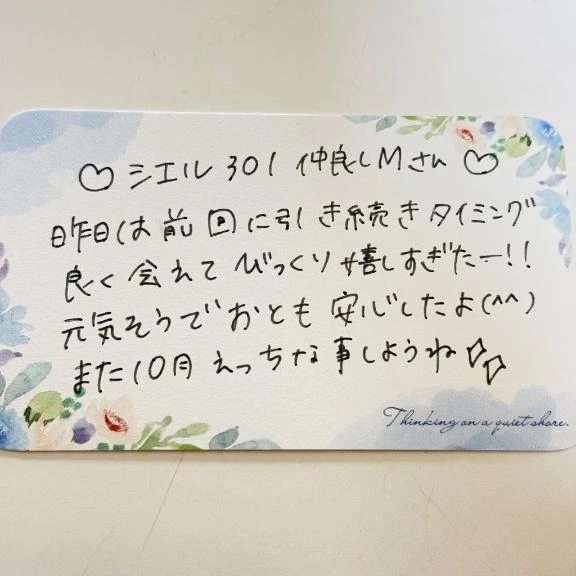 ♡シエル301 仲良しMさん♡
昨日は前回に引き続きタイミング
良く会えてびっくり嬉しすぎたー!!
元気そうでおとも安心したよ(^^)
また10月えっちな事しようね✧✧
Thinking on a quiet shore.